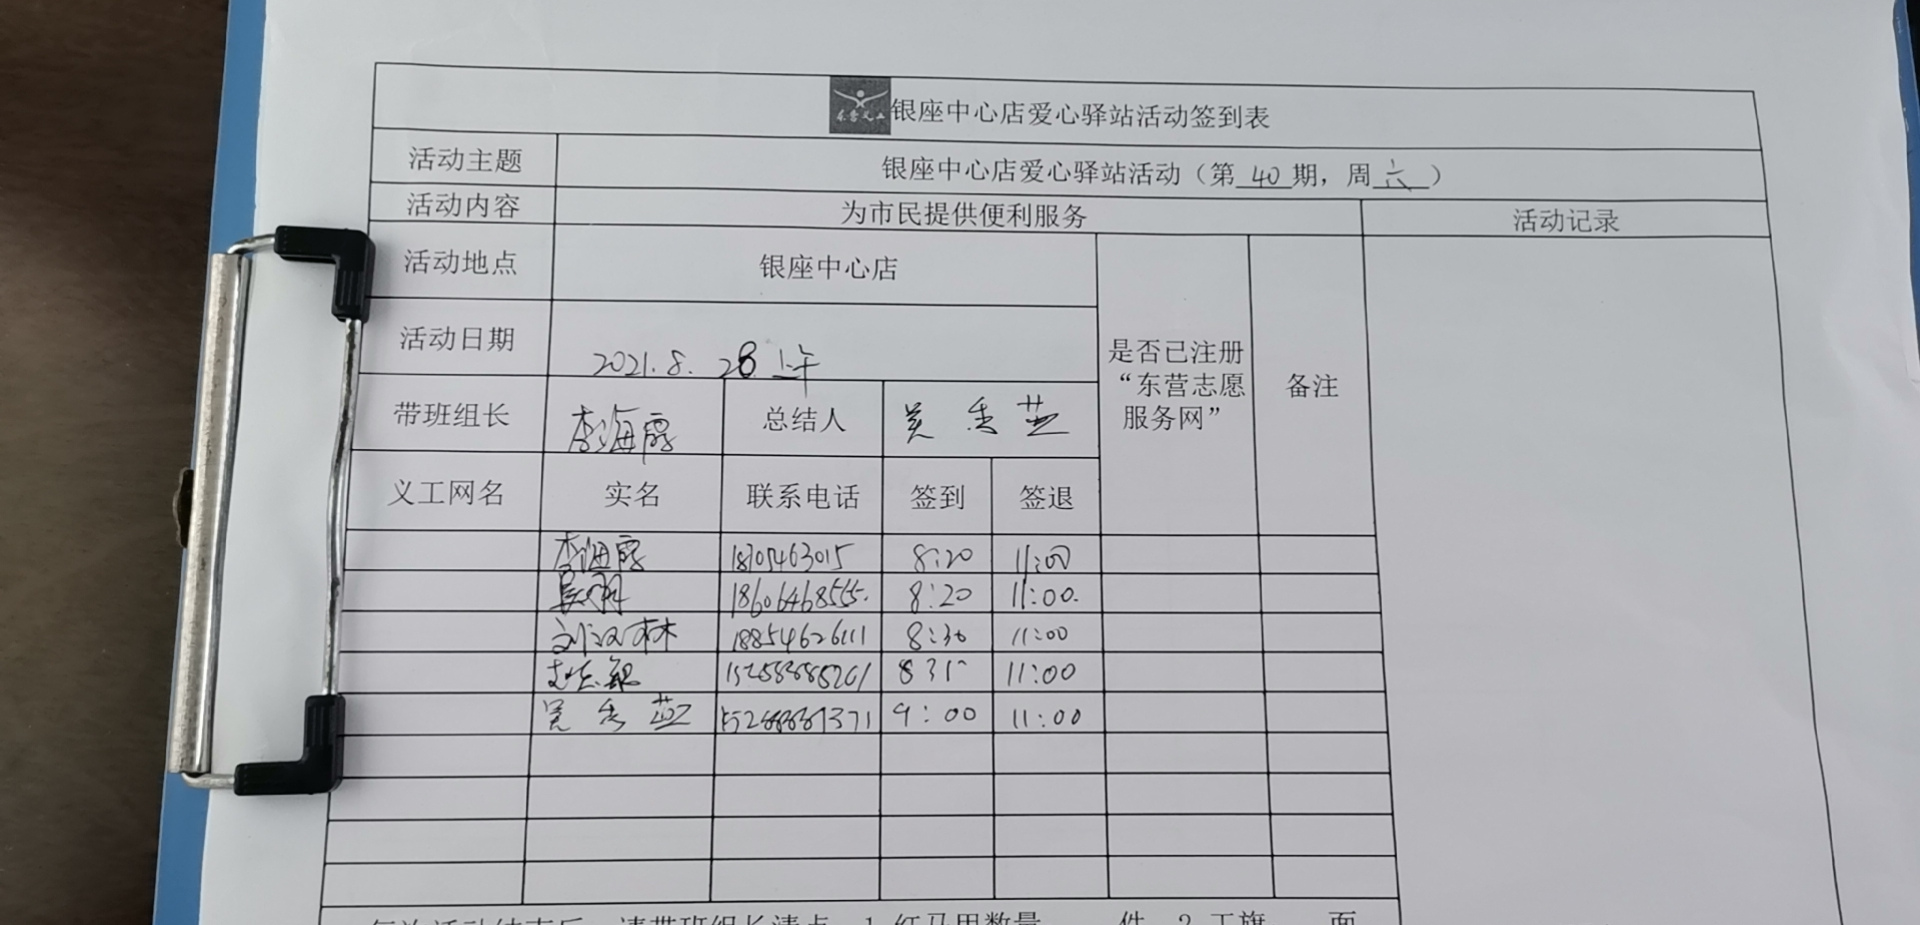 东营义工
银座中心店爱心驿站活动签到表
活动主题 银座中心店爱心驿站活动（第 40 期，周 六 ）
活动内容 为市民提供便利服务 活动记录
活动地点 银座中心店
活动日期 2021.8.28上午
是否已注册“东营志愿服务网” 备注
带班组长 李海霞 总结人 吴秀燕
义工网名 实名 联系电话 签到 签退
李海霞 8:20 11:00
18606468555. 8:20 11:00.
刘汉林 18854626111 8:30 11:00
8 35 11:00
吴秀燕 9:00 11:00
每次活动结束后，请带班组长清点：1.红马甲数量 件，2.工旗 面